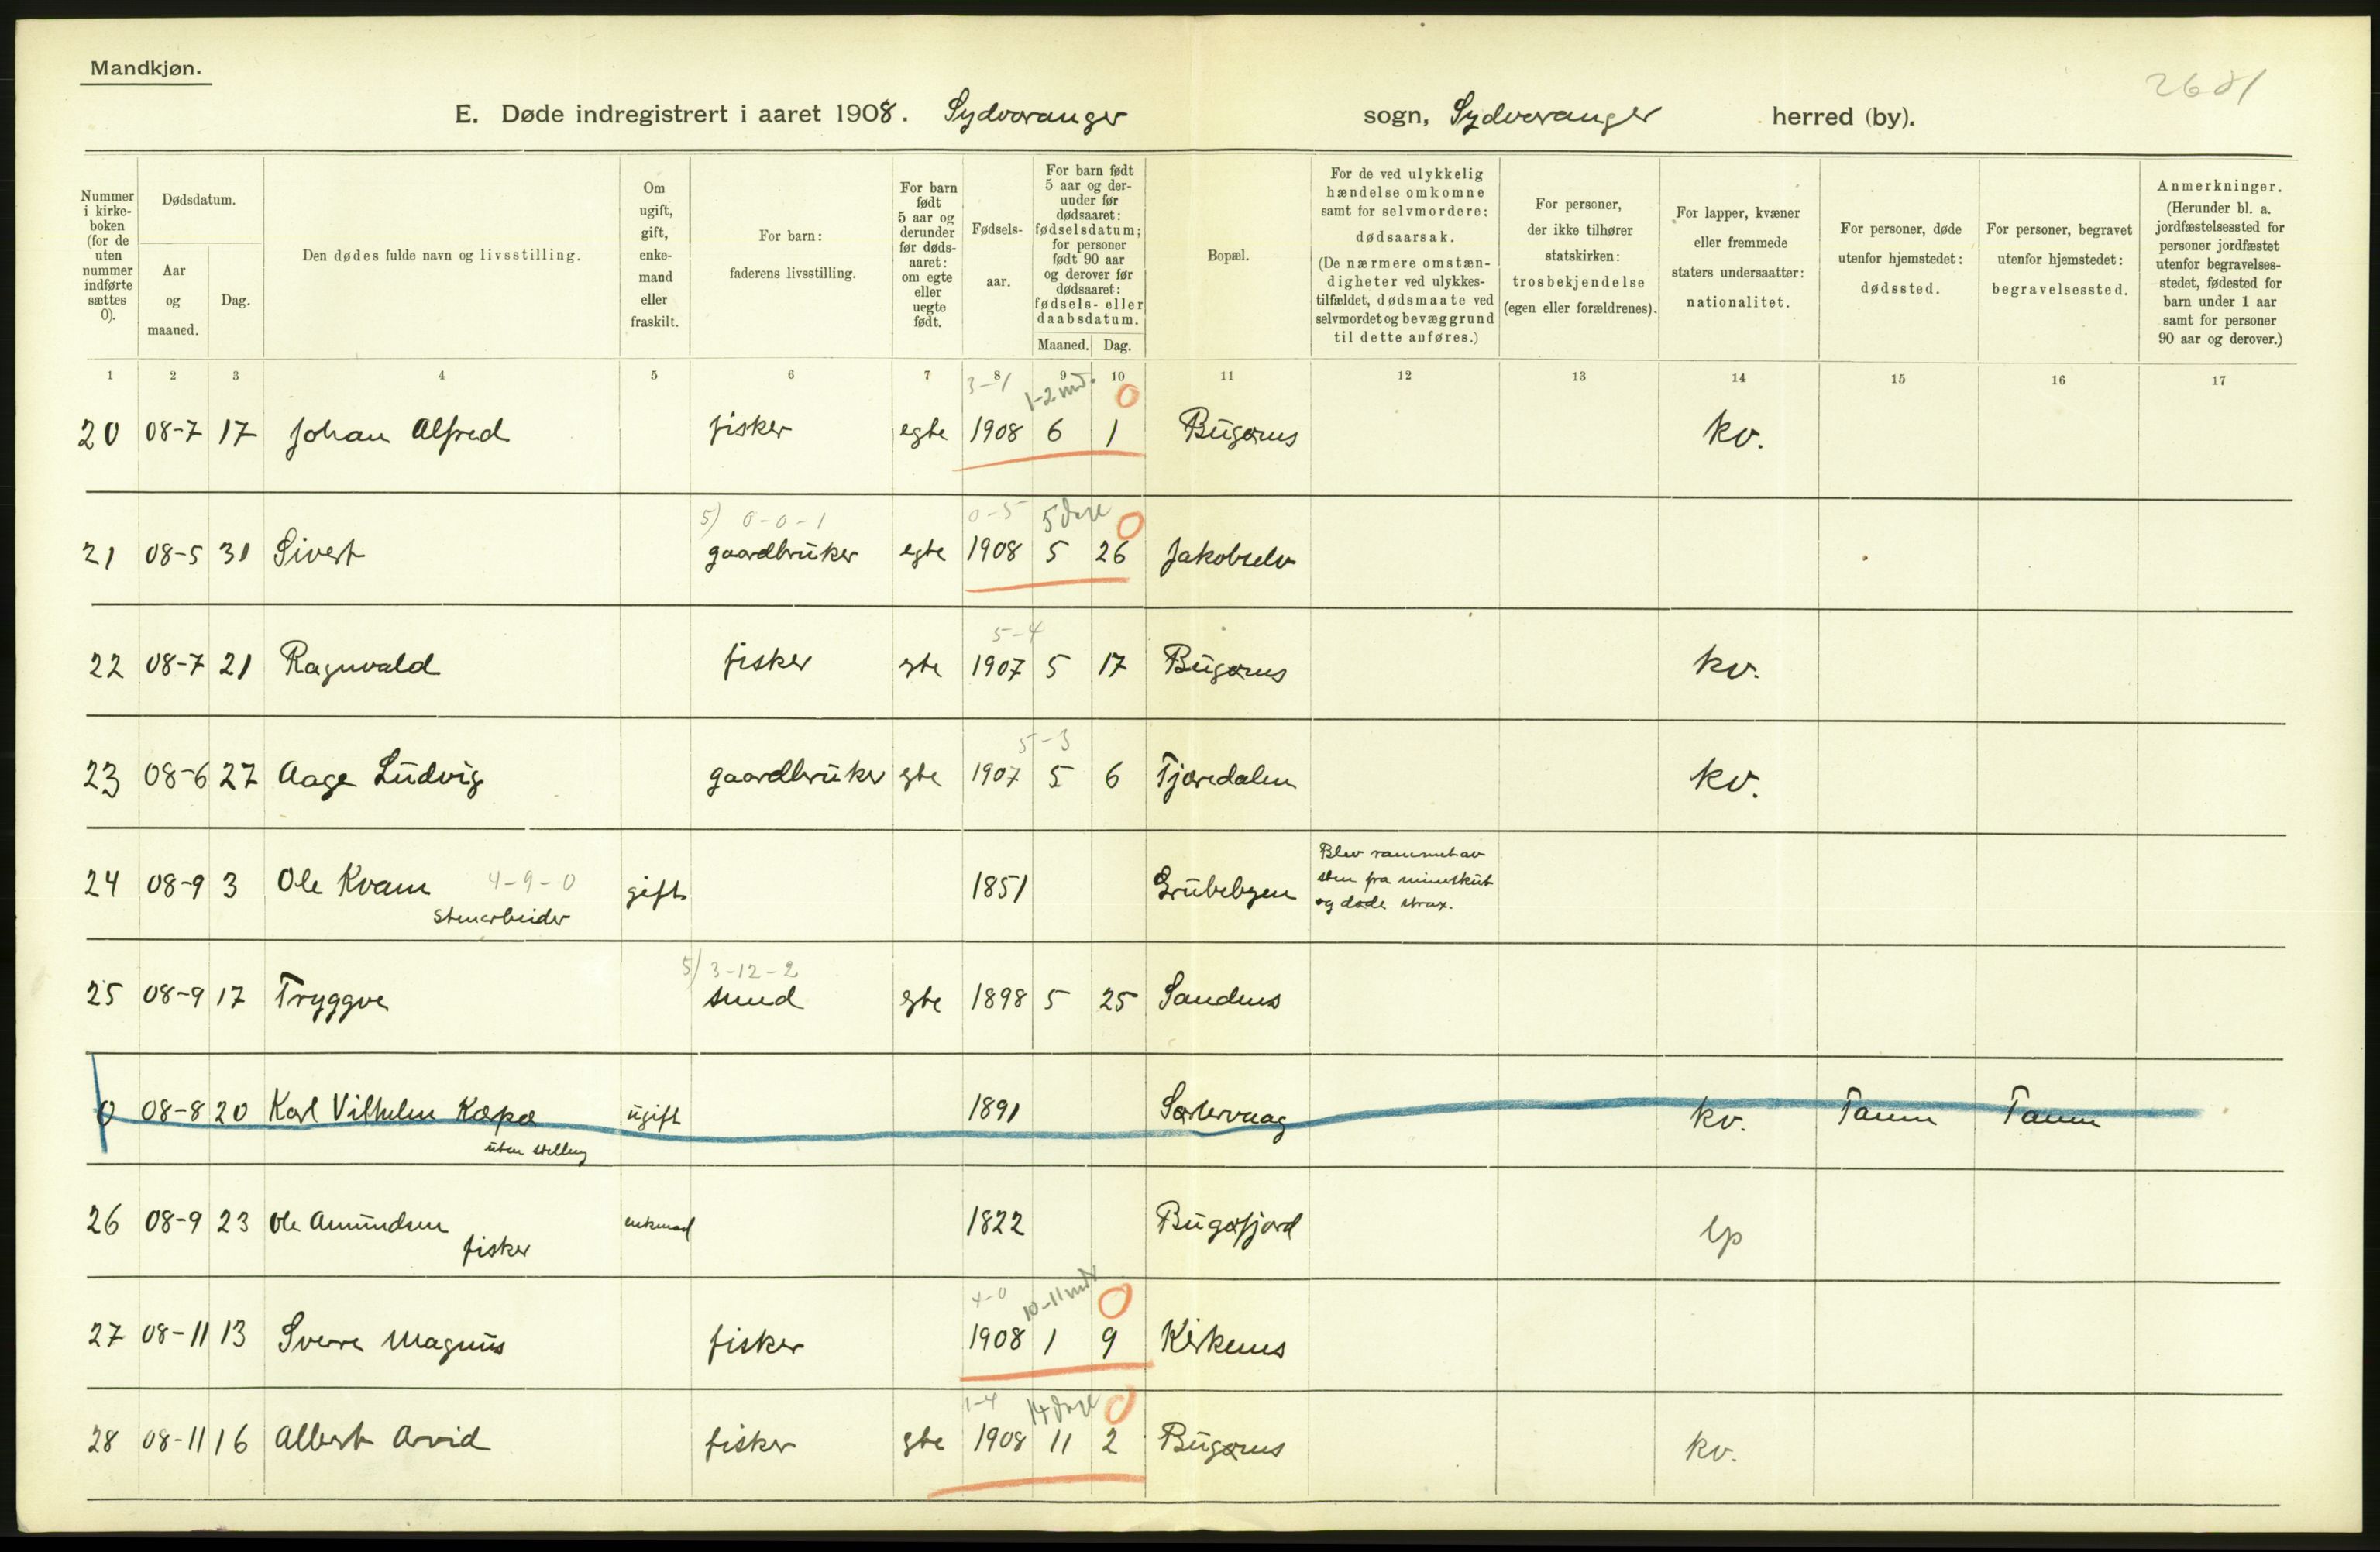 Mandkjøn.
2681
E. Døde indregistrert i aaret 1908. Sydvaranger sogn, Sydvaranger herred (by).
Nummer i kirke- boken (for de uten nummer indførte sættes 0).
Dødsdatum.
Aar og maaned.
Dag.
Den dødes fulde navn og livsstilling.
Om ugift, gift, enke- mand eller fraskilt.
For barn: faderens livsstilling.
For barn født 5 aar og derunder før døds- aaret: om egte eller uegte født.
Fødsels- aar.
For barn født 5 aar og der- under før dødsaaret: fødselsdatum; for personer født 90 aar og derover før dødsaaret: fødsels- eller daabsdatum.
Maaned. Dag.
Bopæl.
For de ved ulykkelig hændelse omkomne samt for selvmordere: dødsaarsak. (De nærmere omstæn- digheter ved ulykkes- tilfældet, dødsmaate ved selvmordet og bevæggrund til dette anføres.)
For personer, der ikke tilhører statskirken: trosbekjendelse (egen eller forældrenes).
For lapper, kvæner eller fremmede staters undersaatter: nationalitet.
For personer, døde utenfor hjemstedet: dødssted.
For personer, begravet utenfor hjemstedet: begravelsessted.
Anmerkninger. (Herunder bl. a. jordfæstelsessted for personer jordfæstet utenfor begravelses- stedet, fødested for barn under 1 aar samt for personer 90 aar og derover.)
1 2 3 4 5 6 7 8 9 10 11 12 13 14 15 16 17
3-1 1-2 md. 0
20 08-7 17 Johan Alfred fisker egte 1908 6 1 Bugønes kv.
5) 0-0-1 0-5 5 dage 0
21 08-5 31 Sivert gaardbruker egte 1908 5 26 Jakobselv
5-4
22 08-7 21 Ragnvald fisker egte 1907 5 17 Bugønes kv.
5-3
23 08-6 27 Aage Ludvig gaardbruker egte 1907 5 6 Tjæredalen kv.
24 08-9 3 Ole Kvam 4-9-0 gift 1851 Grubebyen Blev rammet av
stenarbeider sten fra mineskut
og døde strax.
5) 3-12-2
25 08-9 17 Tryggve smed egte 1898 5 25 Sandnes
0 08-8 20 Karl Vilhelm Kæpæ ugift 1891 kv. Tanen Tanen
uten stilling
26 08-9 23 Ole Amundsen enkemand 1822 Bugøfjord lp
fisker
4-0 10-11 mdr 0
27 08-11 13 Sverre Magnus fisker 1908 1 9 Kirkenes
1-4 14 dage 0
28 08-11 16 Albert Arvid fisker egte 1908 11 2 Bugønes kv.